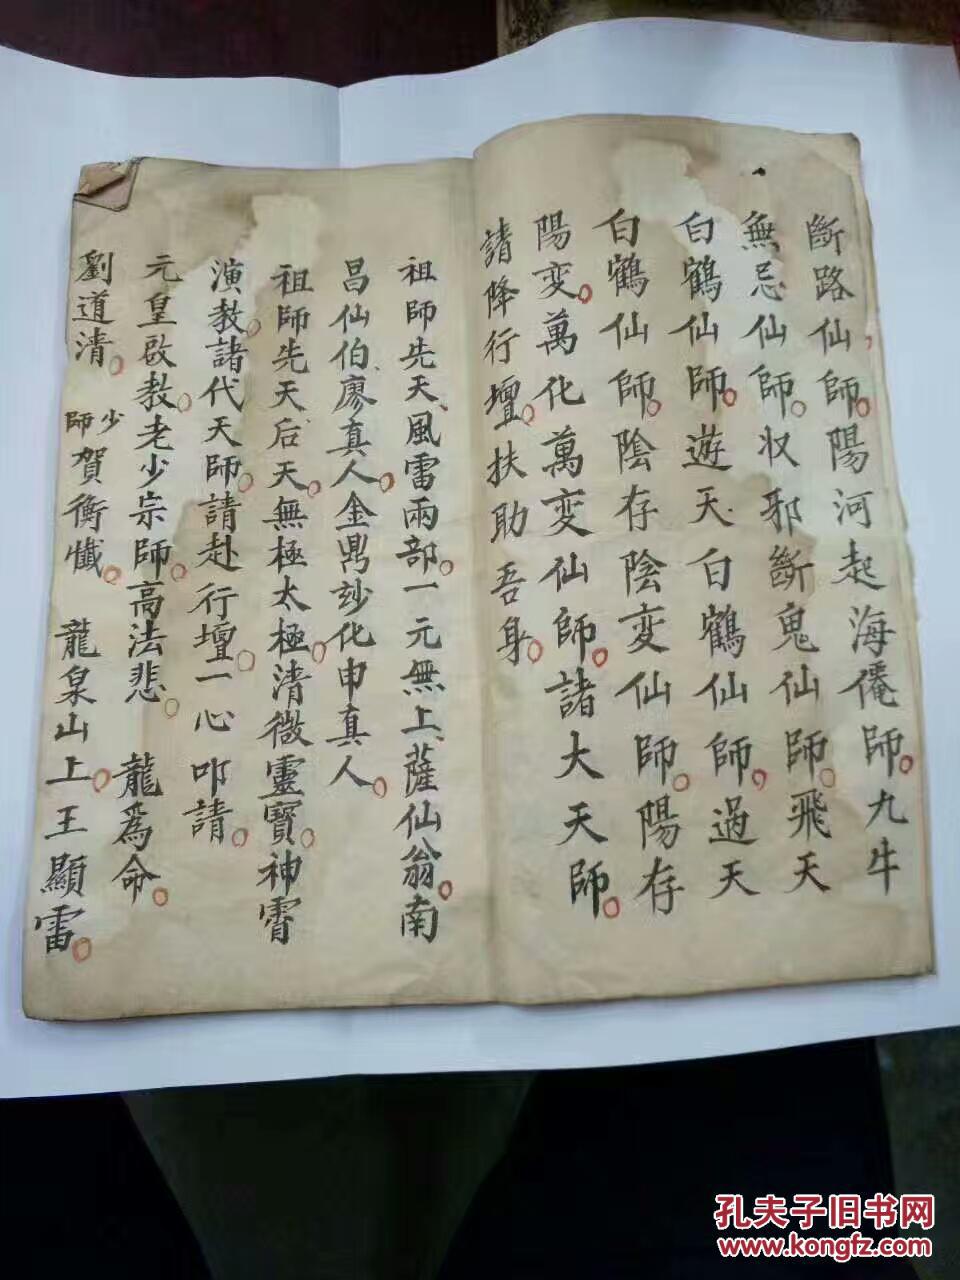 斷路仙師。陽河起海僊師。九牛
無忌仙師。収邪斷鬼仙師。飛天
白鶴仙師。遊天白鶴仙師。過天
白鶴仙師。陰存陰変仙師。陽存
陽変。萬化萬变仙師。諸大天師。
請降行壇。扶助吾身。
祖師先天、風雷兩部。一元無上、薩仙翁。南
昌仙伯、廖真人。金鼎玅化申真人。
祖師先天后天。無極太極。清微靈寶。神霄
演教。諸代天師。請赴行壇。一心叩請。
元皇啟教。老少宗師。高法悲。 龍為命。
劉道清。 少師賀衡懺。 龍泉山上。王顯雷。
孔夫子旧书网
www.kongfz.com